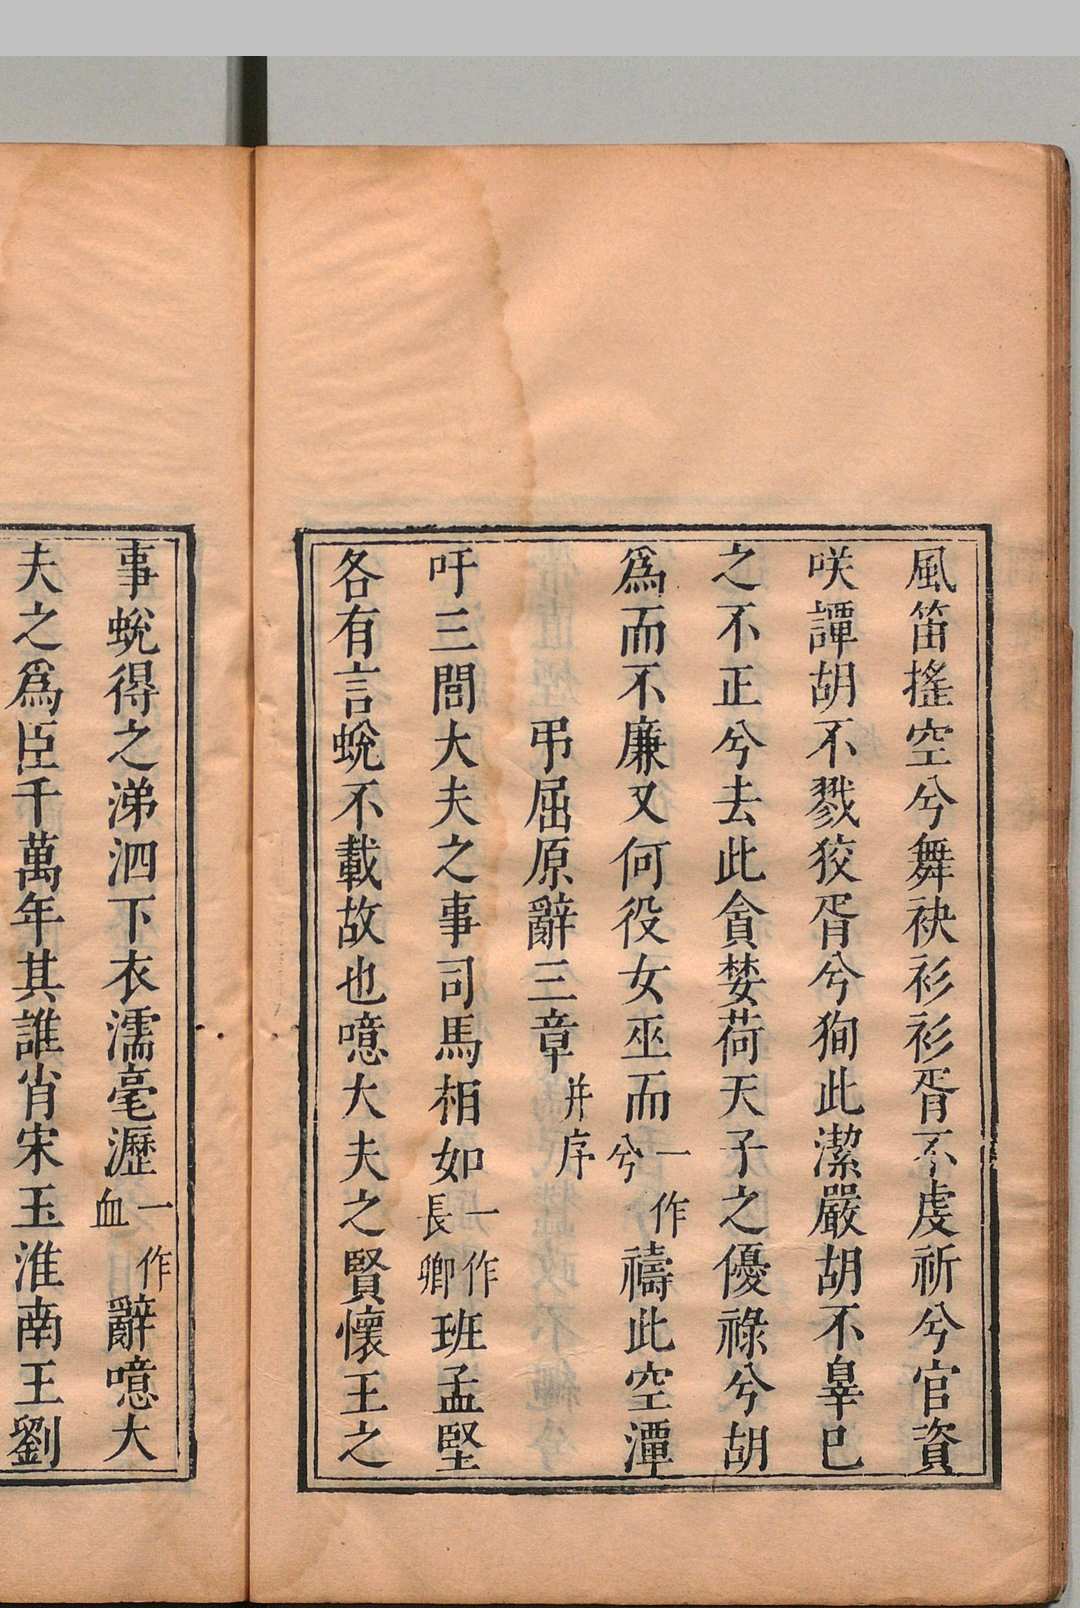 風笛搖空兮舞袂衫衫胥不虔祈兮官資
咲譚胡不戮狡胥兮狥此潔嚴胡不辠已
之不正兮去此貪婪荷天子之優祿兮胡
爲而不廉又何役女巫而一作兮禱此空潭
弔屈原辭三章并序
吁三閭大夫之事司馬相如一作長卿班孟堅
各有言蛻不載故也噫大夫之賢懷王之
事蛻得之涕泗下衣濡毫瀝一作血辭噫大
夫之爲臣千萬年其誰肖宋玉淮南王劉